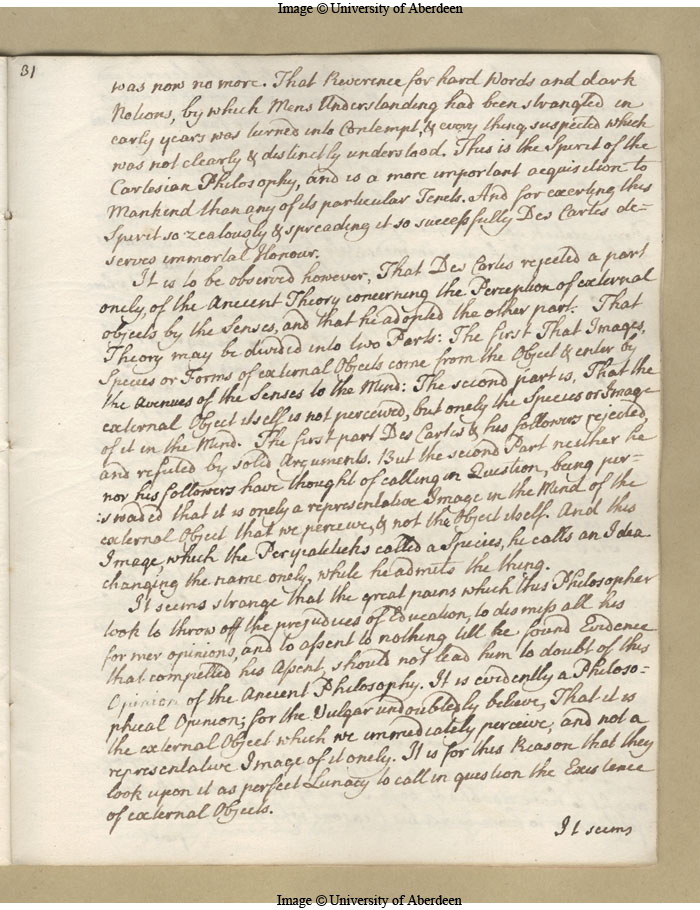 Image © University of Aberdeen
31
was now no more. That Reverence for hard Words and dark
Notions, by which Mens Understanding had been strangled in
early years was turned into Contempt, & every thing suspected which
was not clearly & distinctly understood. This is the Spirit of the
Cartesian Philosophy, and is a more important acquisition to
Mankind than any of its particular Tenets. And for exerting this
Spirit so zealously & spreading it so successfully Des Cartes de=
serves immortal Honour.
It is to be observed however, That Des Cartes rejected a part
onely, of the Ancient Theory concerning the Perception of external
objects by the Senses, and that he adopted the other part. That
Theory may be divided into two Parts: The first That Images,
Species or Forms of external Objects come from the Object & enter by
the avenues of the Senses to the Mind: The second part is, That the
external Object itself is not perceived, but onely the Species or Image
of it in the Mind. The first part Des Cartes & his followers rejected,
and refuted by solid Arguments. But the second Part neither he
nor his followers have thought of calling in Question, being per=
:swaded that it is onely a representative Image in the Mind of the
external Object that we perceive, & not the Object itself. And this
Image, which the Peripateticks called a Species, he calls an Idea
changing the name onely, while he admits the thing.
It seems strange that the great pains which this Philosopher
took to throw off the prejudices of Education, to dismiss all his
former opinions, and to assent to nothing till he found Evidence
that compelled his Assent, should not lead him to doubt of this
Opinion of the Ancient Philosophy. It is evidently a Philoso=
phical Opinion; for the Vulgar undoubtedly believe, That it is
the external Object which we immediately perceive, and not a
representative Image of it onely. It is for this Reason that they
look upon it as perfect Lunacy to call in question the Existence
of external Objects.
It seems
Image © University of Aberdeen